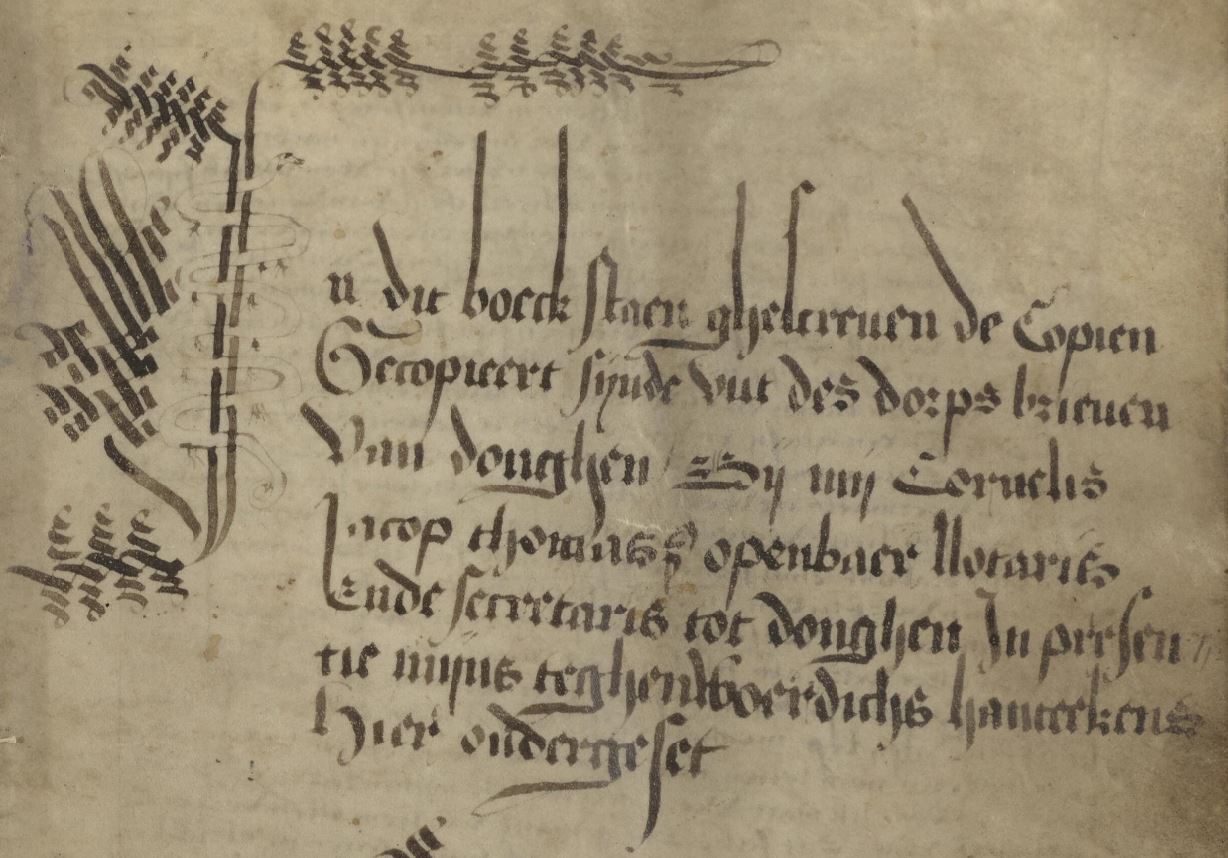 In dit boeck staen ghescreuen de Copien
Gecopieert synde vut des dorps brieuen
Van donghen / By mij Cornelis
Jacop thomass openbaer Notaris
Ende secretaris tot donghen In presen
tie mijns teghenwoerdichs hantekens
Hier ondergeset